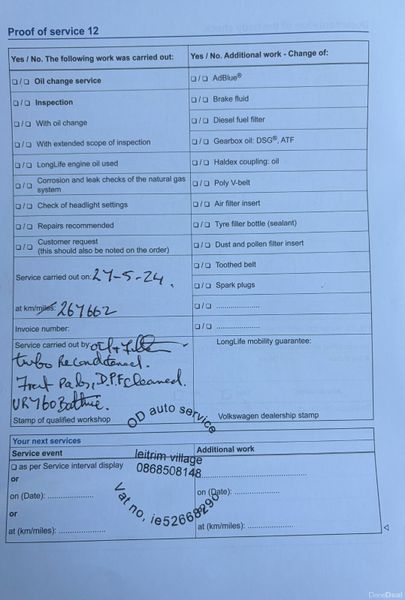 Proof of service 12
Yes / No. The following work was carried out:
❑ / ❑ Oil change service
❑ / ❑ Inspection
❑ / ❑ With oil change
❑ / ❑ With extended scope of inspection
❑ / ❑ LongLife engine oil used
❑ / ❑ Corrosion and leak checks of the natural gas
system
❑ / ❑ Check of headlight settings
❑ / ❑ Repairs recommended
❑ / ❑ Customer request
(this should also be noted on the order)
Service carried out on: 27-5-24.
at km/miles: 267662
Invoice number:
Service carried out by oil + filter
turbo Reconditioned.
Front Pads, D.P.F cleaned.
Stamp of qualified workshop
Yes / No. Additional work - Change of:
❑ / ❑ AdBlue®
❑ / ❑ Brake fluid
❑ / ❑ Diesel fuel filter
❑ / ❑ Gearbox oil: DSG®, ATF
❑ / ❑ Haldex coupling: oil
❑ / ❑ Poly V-belt
❑ / ❑ Air filter insert
❑ / ❑ Tyre filler bottle (sealant)
❑ / ❑ Dust and pollen filter insert
❑ / ❑ Toothed belt
❑ / ❑ Spark plugs
❑ / ❑ ..................
❑ / ❑ ..................
LongLife mobility guarantee:
Volkswagen dealership stamp
OD auto service
leitrim village
0868508148
Vat no, ie5266829O
Your next services
Service event
❑ as per Service interval display
or
on (Date): ...................
or
at (km/miles): ...................
Additional work
on (Date): ..................
at (km/miles): ..................
DoneDeal